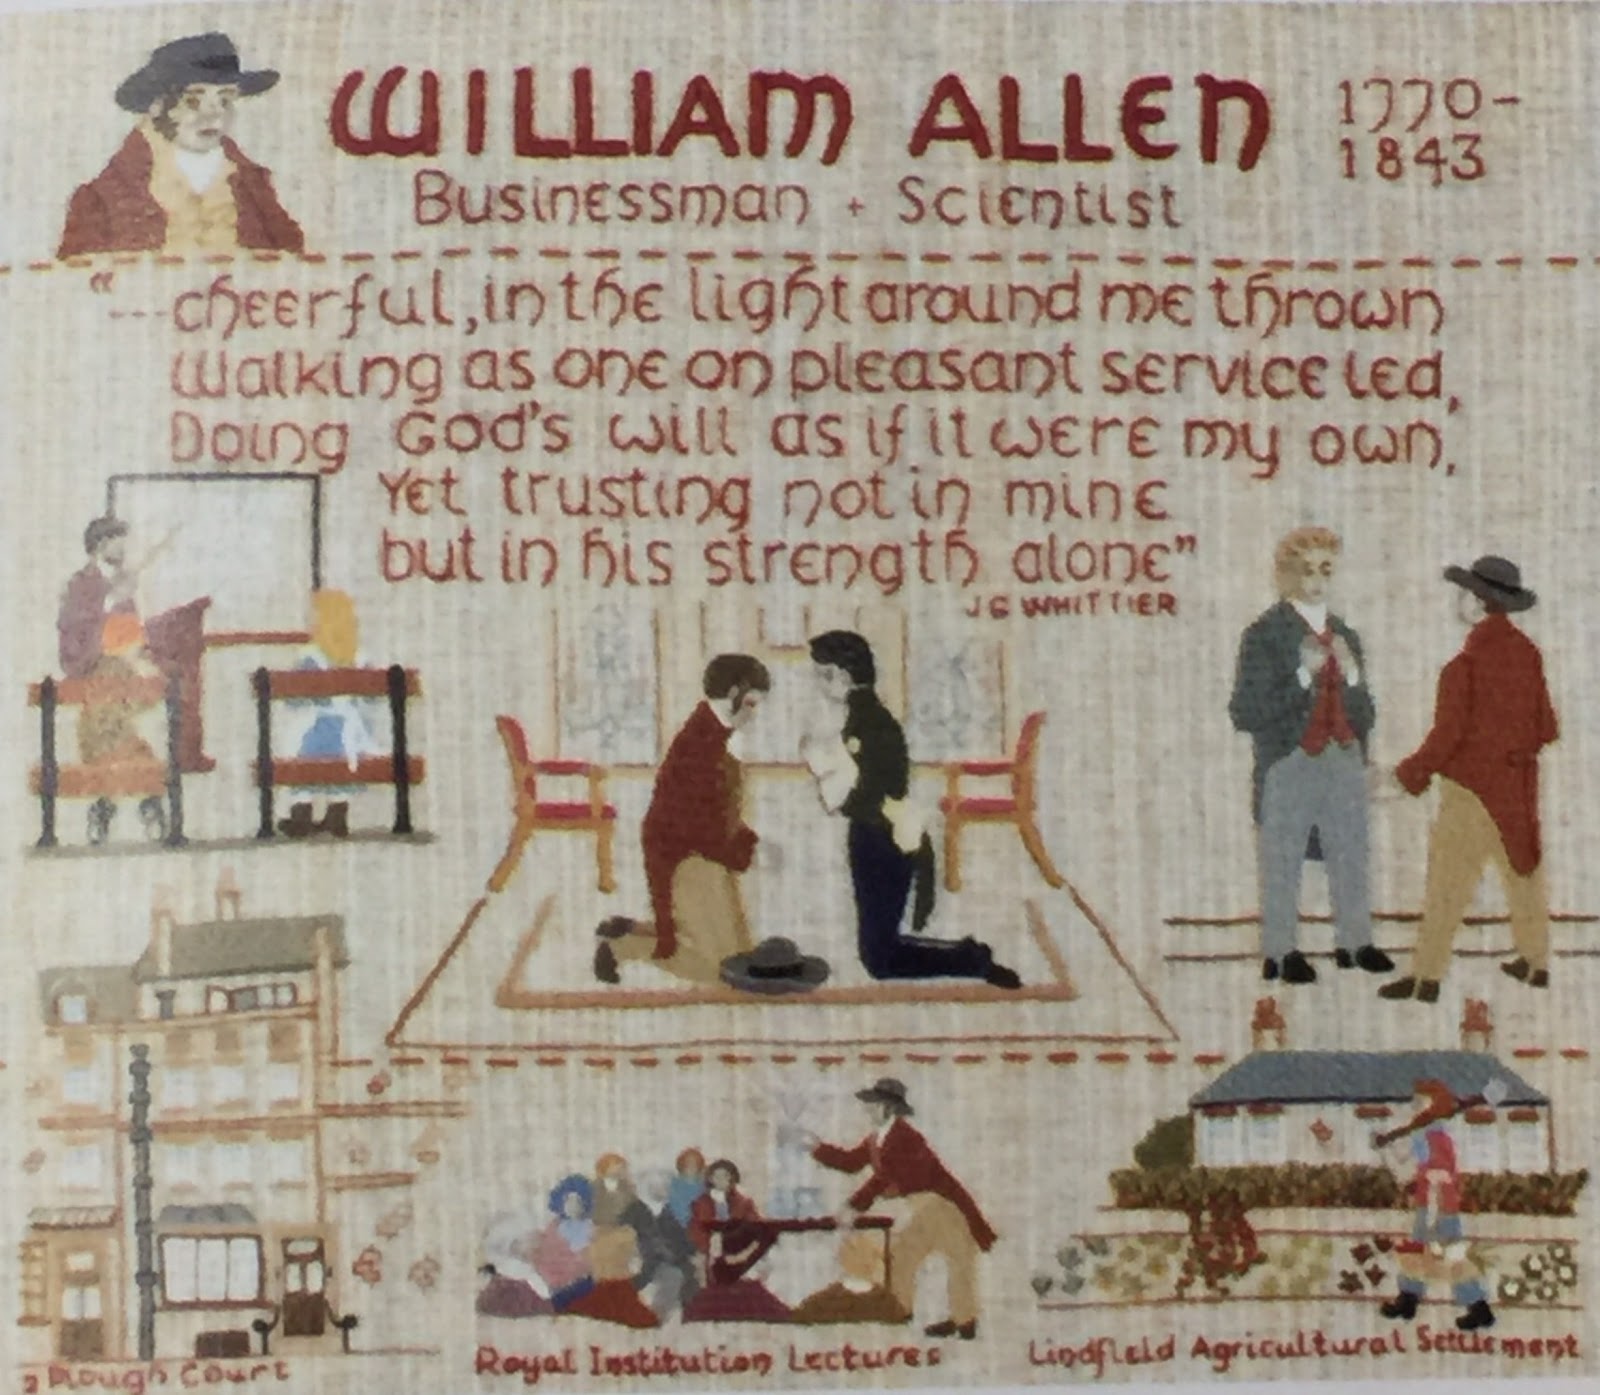 WILLIAM ALLEN 1770-
1843
Businessman + Scientist
"---cheerful, in the light around me thrown
Walking as one on pleasant service led,
Doing God's will as if it were my own,
Yet trusting not in mine
but in his strength alone"
J G WHITTIER
2 Plough Court
Royal Institution Lectures
Lindfield Agricultural Settlement